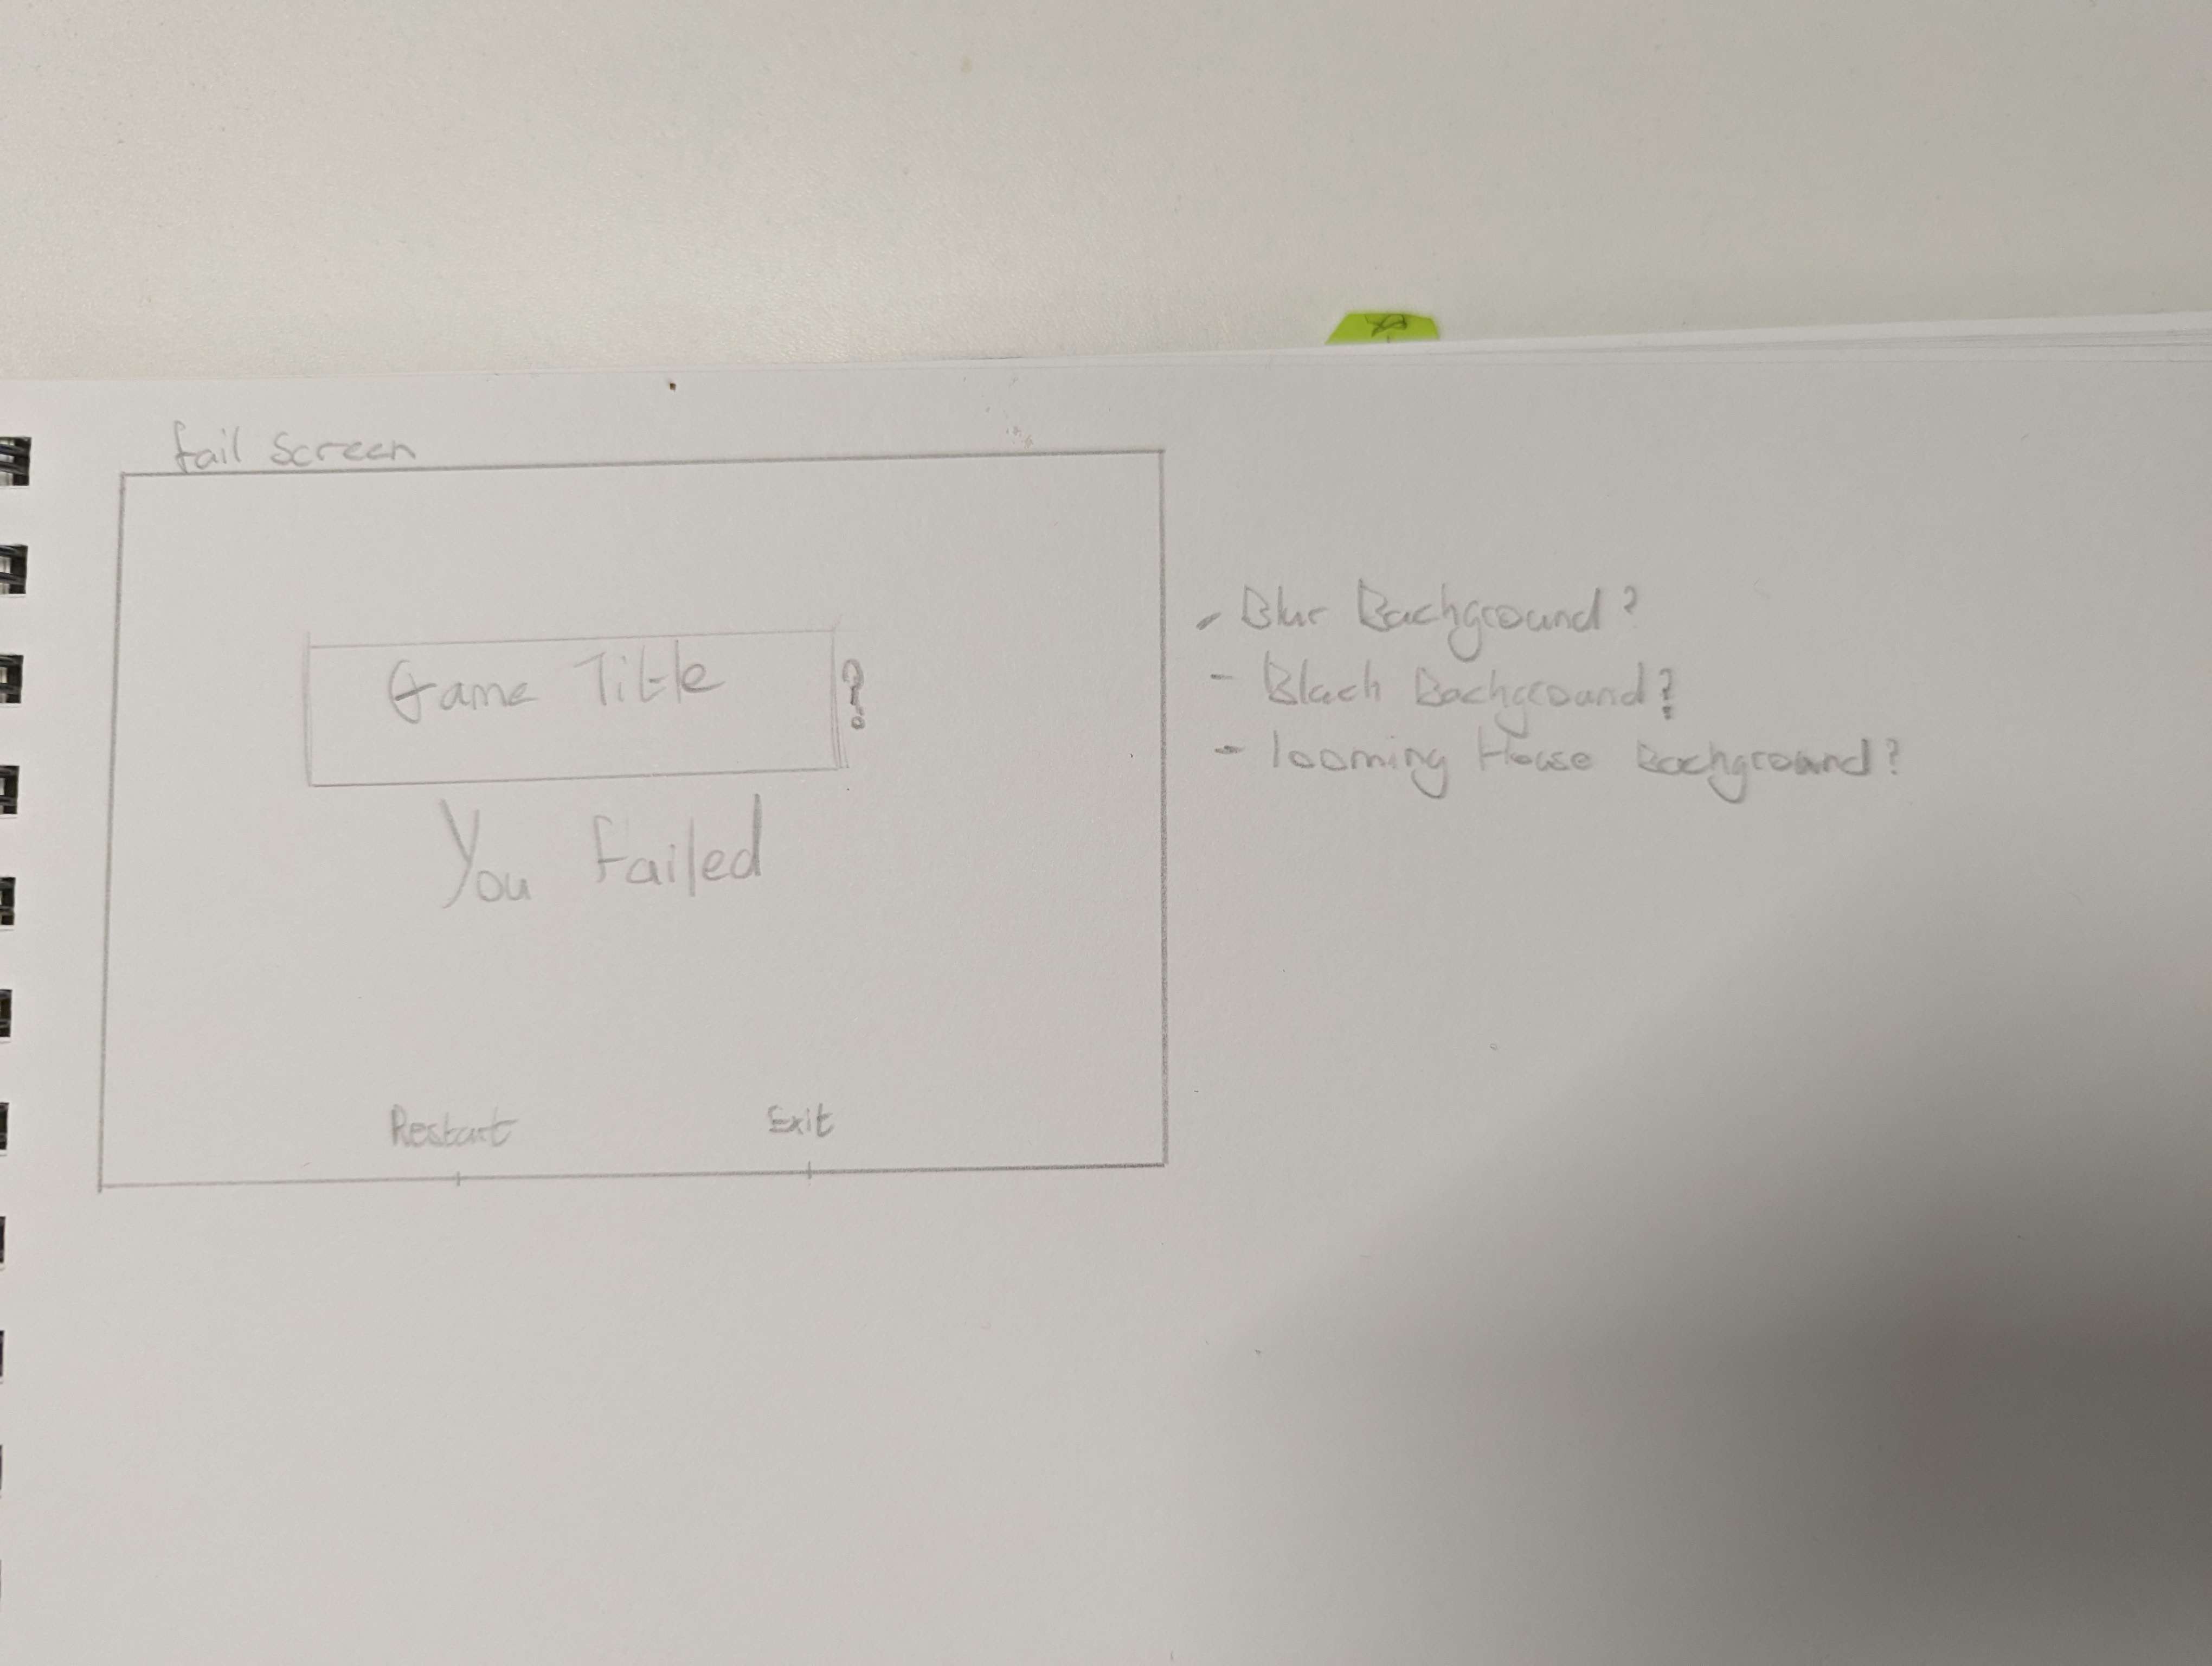 fail screen
Game Title ?
You Failed
Restart Exit
- Blur Background?
- Black Background?
- looming House Background?